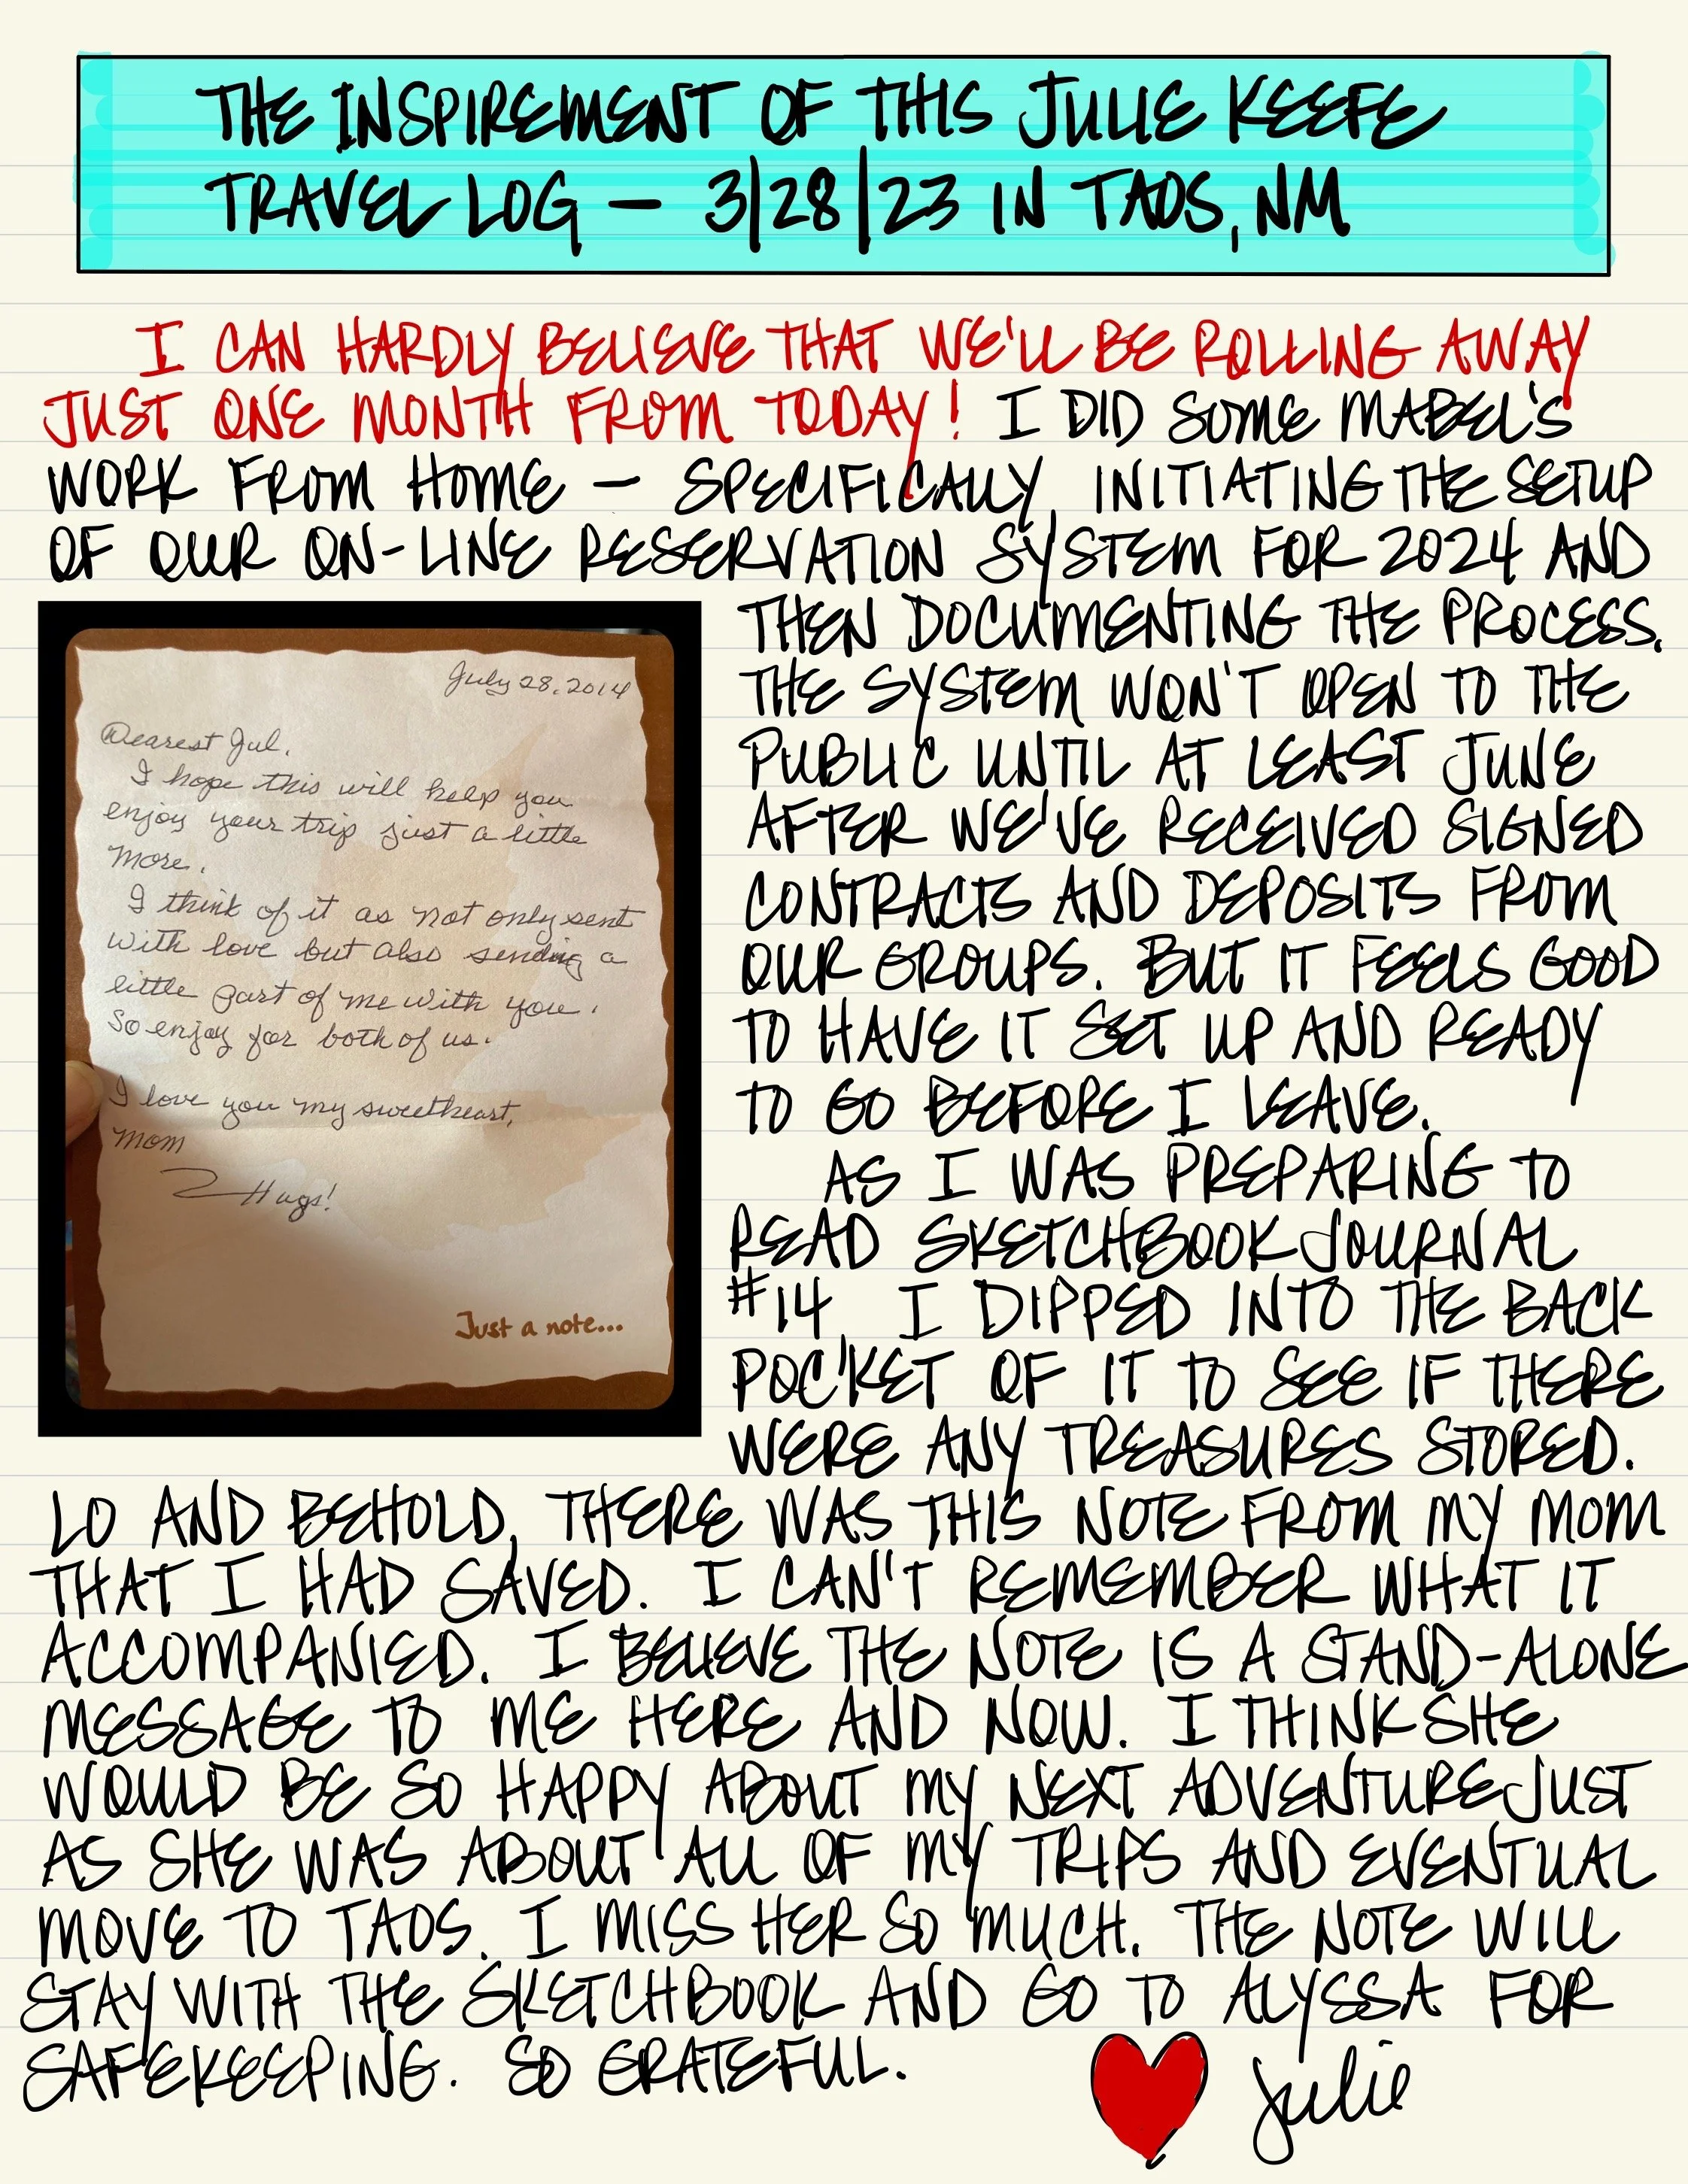 THE INSPIREMENT OF THIS JULIE KEEFE
TRAVEL LOG — 3/28/23 IN TAOS, NM
I CAN HARDLY BELIEVE THAT WE'LL BE ROLLING AWAY
JUST ONE MONTH FROM TODAY! I DID SOME MABEL'S
WORK FROM HOME — SPECIFICALLY, INITIATING THE SETUP
OF OUR ON-LINE RESERVATION SYSTEM FOR 2024 AND
THEN DOCUMENTING THE PROCESS.
THE SYSTEM WON'T OPEN TO THE
PUBLIC UNTIL AT LEAST JUNE
AFTER WE'VE RECEIVED SIGNED
CONTRACTS AND DEPOSITS FROM
OUR GROUPS. BUT IT FEELS GOOD
TO HAVE IT SET UP AND READY
TO GO BEFORE I LEAVE.
AS I WAS PREPARING TO
READ SKETCHBOOK JOURNAL
#14, I DIPPED INTO THE BACK
POCKET OF IT TO SEE IF THERE
WERE ANY TREASURES STORED.
July 28, 2014
Dearest Jul,
I hope this will help you
enjoy your trip just a little
more.
I think of it as not only sent
with love but also sending a
little part of me with you.
So enjoy for both of us.
I love you my sweetheart,
Mom
Hugs!
Just a note...
LO AND BEHOLD, THERE WAS THIS NOTE FROM MY MOM
THAT I HAD SAVED. I CAN'T REMEMBER WHAT IT
ACCOMPANIED. I BELIEVE THE NOTE IS A STAND-ALONE
MESSAGE TO ME HERE AND NOW. I THINK SHE
WOULD BE SO HAPPY ABOUT MY NEXT ADVENTURE JUST
AS SHE WAS ABOUT ALL OF MY TRIPS AND EVENTUAL
MOVE TO TAOS. I MISS HER SO MUCH. THE NOTE WILL
STAY WITH THE SKETCHBOOK AND GO TO ALYSSA FOR
SAFEKEEPING. SO GRATEFUL.
Julie